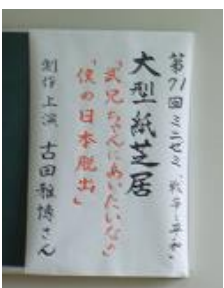 第71回ミニゼミ「戦争と平和」
大型紙芝居
「武兄ちゃんにあいたいな」
「僕の日本脱出」
制作上演 古田雅博さん